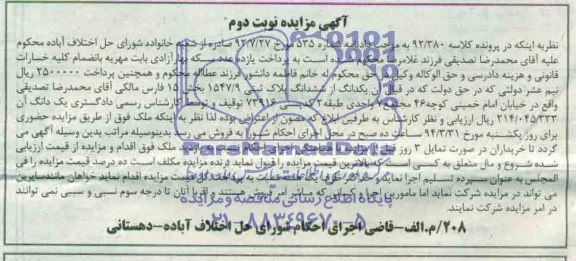 آگهی مزایده نوبت دوم
نظر به اینکه در پرونده کلاسه ۹۲/۳۸۰ به موجب دادنامه شماره ۵۳۵ مورخ ۹۲/۷/۲۷ صادره از شعبه خانواده شورای حل اختلاف آباده محکوم
علیه آقای محمدرضا صدیقی فرزند غلامرضا محکوم شده است به پرداخت یازده عدد سکه بهار آزادی بابت مهریه بانضمام کلیه خسارات
قانونی و هزینه دادرسی و حق الوکاله وکیل در حق محکوم له خانم فاطمه دانشور فرزند عطااله محکوم و همچنین پرداخت ۲۵۰۰۰۰۰ ریال
نیم عشر دولتی که در حق دولت که در قبال آن یکدانگ از ششدانگ پلاک ثبتی ۱۵۴۷/۹ بخش ۱۵ فارس مالکی آقای محمدرضا صدیقی
واقع در خیابان امام خمینی کوچه ۴۶ مجتمع واحدی طبقه ۲ کدپستی ۷۳۹۱۶ توقیف و توسط کارشناس رسمی دادگستری یک دانگ آن
۲۱۴/۰۴۵/۳۳۳ ریال ارزیابی و نظر کارشناس به طرفین ابلاغ که مصون از اعتراض بوده لذا نظر به اینکه ملک فوق از طریق مزایده حضوری
برای روز یکشنبه مورخ ۹۴/۳/۳۱ ساعت ده صبح در محل اجرای احکام شورا به فروش می رسد بدینوسیله مراتب بدین وسیله آگهی می
گردد تا خریداران در صورت تمایل ۳ روز قبل از مزایده ملک فوق اقدام و مزایده از قیمت ارزیابی
شده شروع و مال متعلق به کسی است که بالاترین قیمت مزایده را قبول نماید برنده مزایده مکلف است ده درصد قیمت مزایده را فی
المجلس به عنوان سپرده تسلیم اجرا نماید و حداکثر ظرف یکماه قیمت مزایده اقدام نماید خواهان مانند سایرین
می تواند در مزایده شرکت نماید اما مامورین اجرا و کسانی که مباشر امر فروش هستند و اقربا آنان تا درجه سوم نسبی و سببی نمی توانند
در امر مزایده شرکت نمایند.
۲۰۸/م.الف-قاضی اجرای احکام شورای حل اختلاف آباده-دهستانی
ParsNamadData
پایگاه اطلاع رسانی مناقصه و مزایده
۰۲۱-۸۸۳۴۹۶۷۰-۵